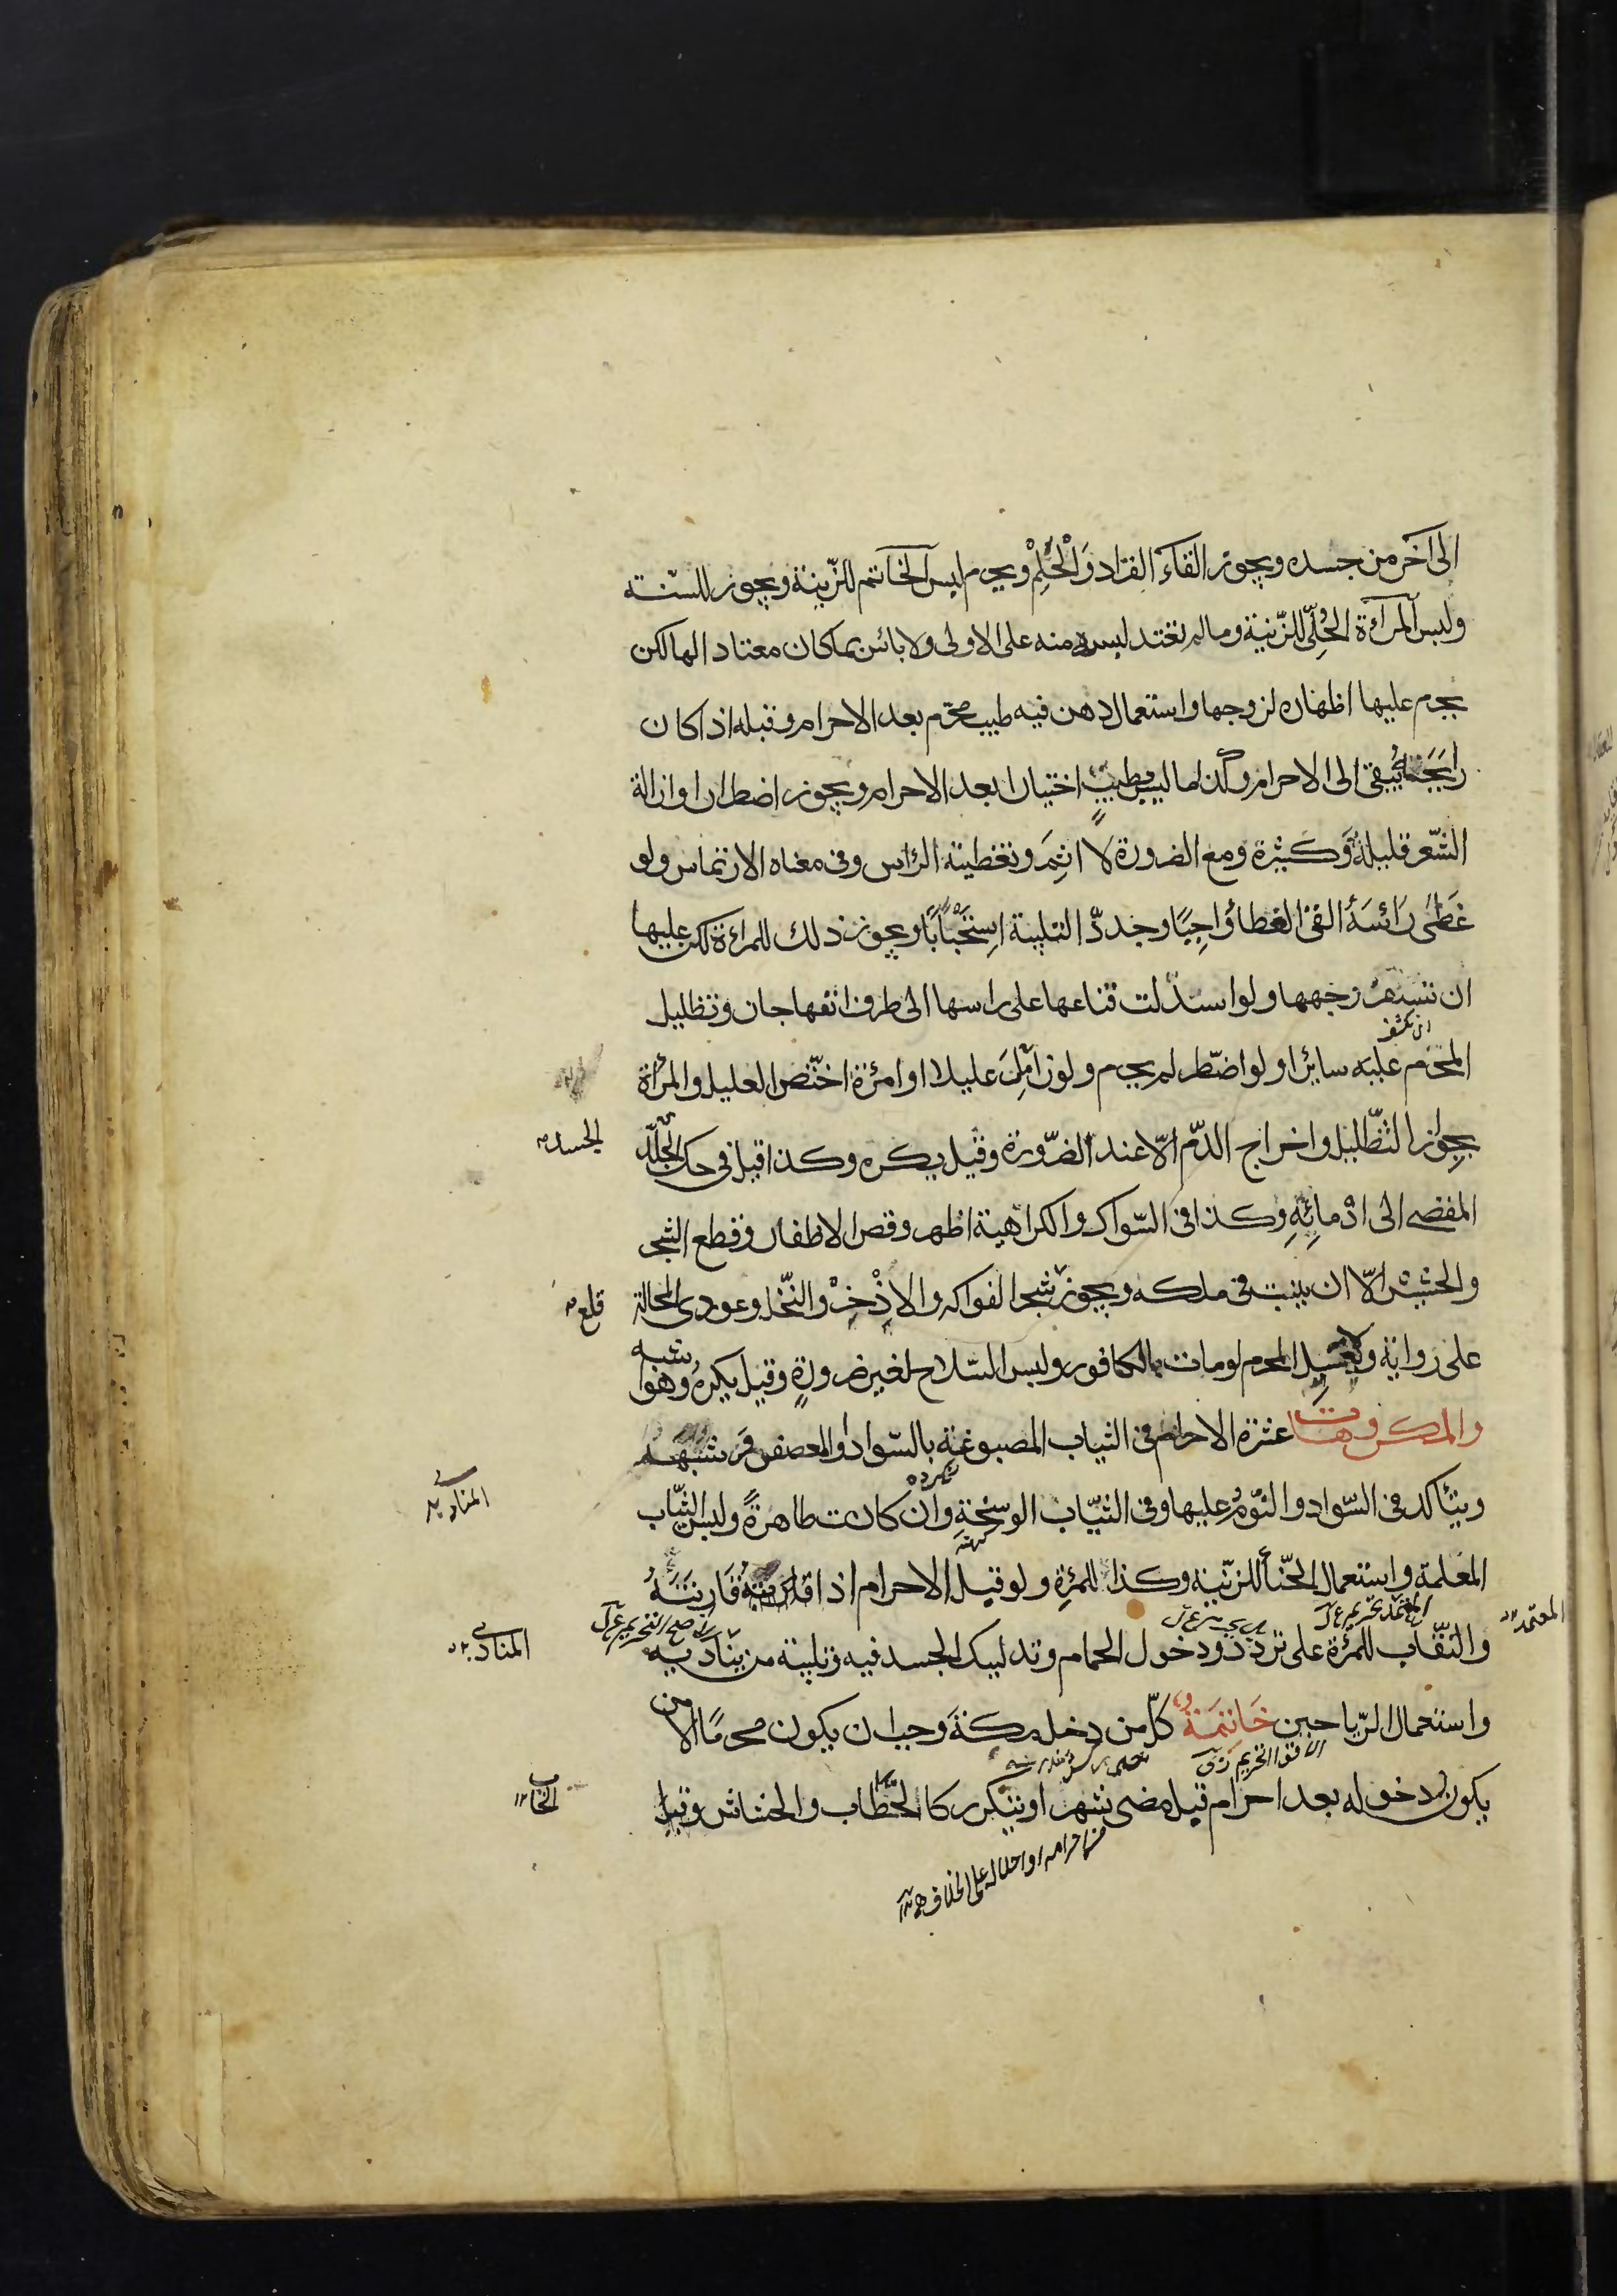 الى آخر من جسده ويجوز القاء القراد والحلم ويحرم لبس الخاتم للزّينة ويجوز للسنة
ولبس المرأة الحلي للزّينة وما لم تعتد لبسه منه على الاولى ولا بائس بما كان معتاد الها لكن
يحرم عليها اظهاره لزوجها واستعمال دهن فيه طيب محرّم بعد الاحرام وقبله اذا كان
رايحته يبقى الى الاحرام وكذا ما ليس بطيب اختيارا بعد الاحرام ويجوز اضطرارا وازالة
الشّعر قليله وكثيرة ومع الضرورة لا اثم وتغطية الرأس وفى معناه الارتماس ولو
غطّى رائسه القى الغطاء واجبًا وجدّد التلبية استحبابًا ويجوز ذلك للمراءة لكن عليها
ان تسفر وجهها ولو اسدلت قناعها على راسها الى طرف انفها جاز وتظليل
ان تكشف
المحرّم عليه سائرا ولو اضّطر لم يحرم ولو زامل عليلا او امرئة اختّص العليل والمرأة
بجواز التّظليل واخراج الدّم الّا عند الضّرورة وقيل يكره وكذا قيل فى حكّ الجلد
الجسد
المفضى الى ادمائه وكذا فى السّواك والكراهية اظهر وقص الاظفار وقطع الشجر
والحشيش الّا ان ينبت فى ملكه ويجوز شجر الفواكه والاذخر والنّخل وعودى المحالة
قلع
على رواية وتغسيل المحرم لو مات بالكافور ولبس السّلاح لغير ضرورة وقيل يكره وهو اشبه
والمكروهات عشرة الاحرام فى الثياب المصبوغة بالسّواد او العصفر وشبهه
ويتأكد فى السّواد والنّوم عليها وفى الثيّاب الوسخة وان كانت طاهرة ولبس الثيّاب
المعلمة واستعمال الحنّا للزّينة وكذا للمرئة ولو قبل الاحرام اذا قارنته
والنّقاب للمرئة على تردّد ودخول الحمام وتدليك الجسد فيه وتلبية من يناديه
المنادى
المعتمد
واستعمال الرّياحين خاتمة كلّ من دخل مكّة وجب ان يكون محرمًا الا من
يكون دخوله بعد احرام قبل مضى شهر او يتكرر كالحّطاب والحشاش وقيل
من احرامه او احلاله على الخلاف